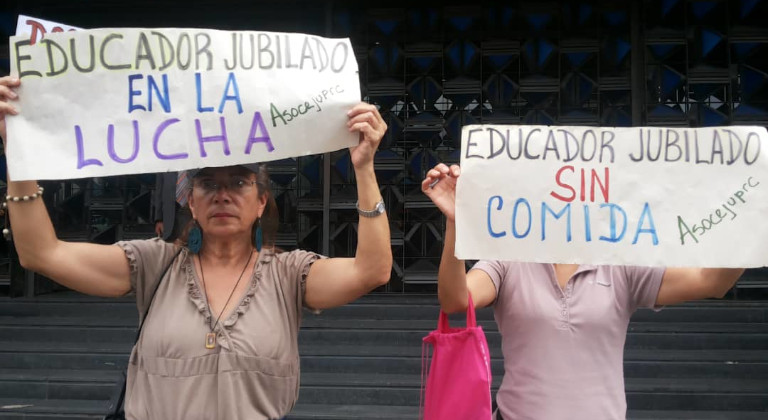 EDUCADOR JUBILADO
EN LA
LUCHA
Asocejuprc
EDUCADOR JUBILADO
SIN
COMIDA
Asocejuprc